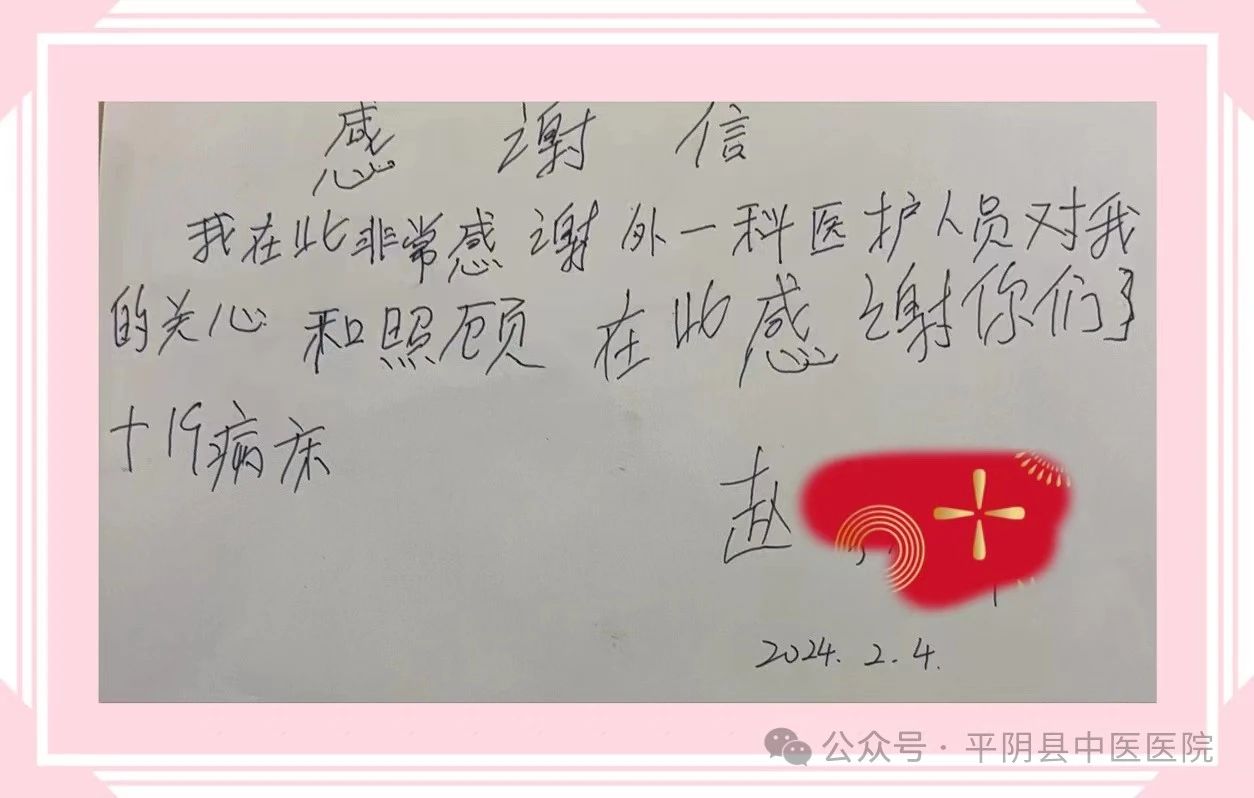 感谢信
我在此非常感谢外一科医护人员对我
的关心和照顾在此感谢你们了
+19病床
赵
2024.2.4.
公众号·平阴县中医医院